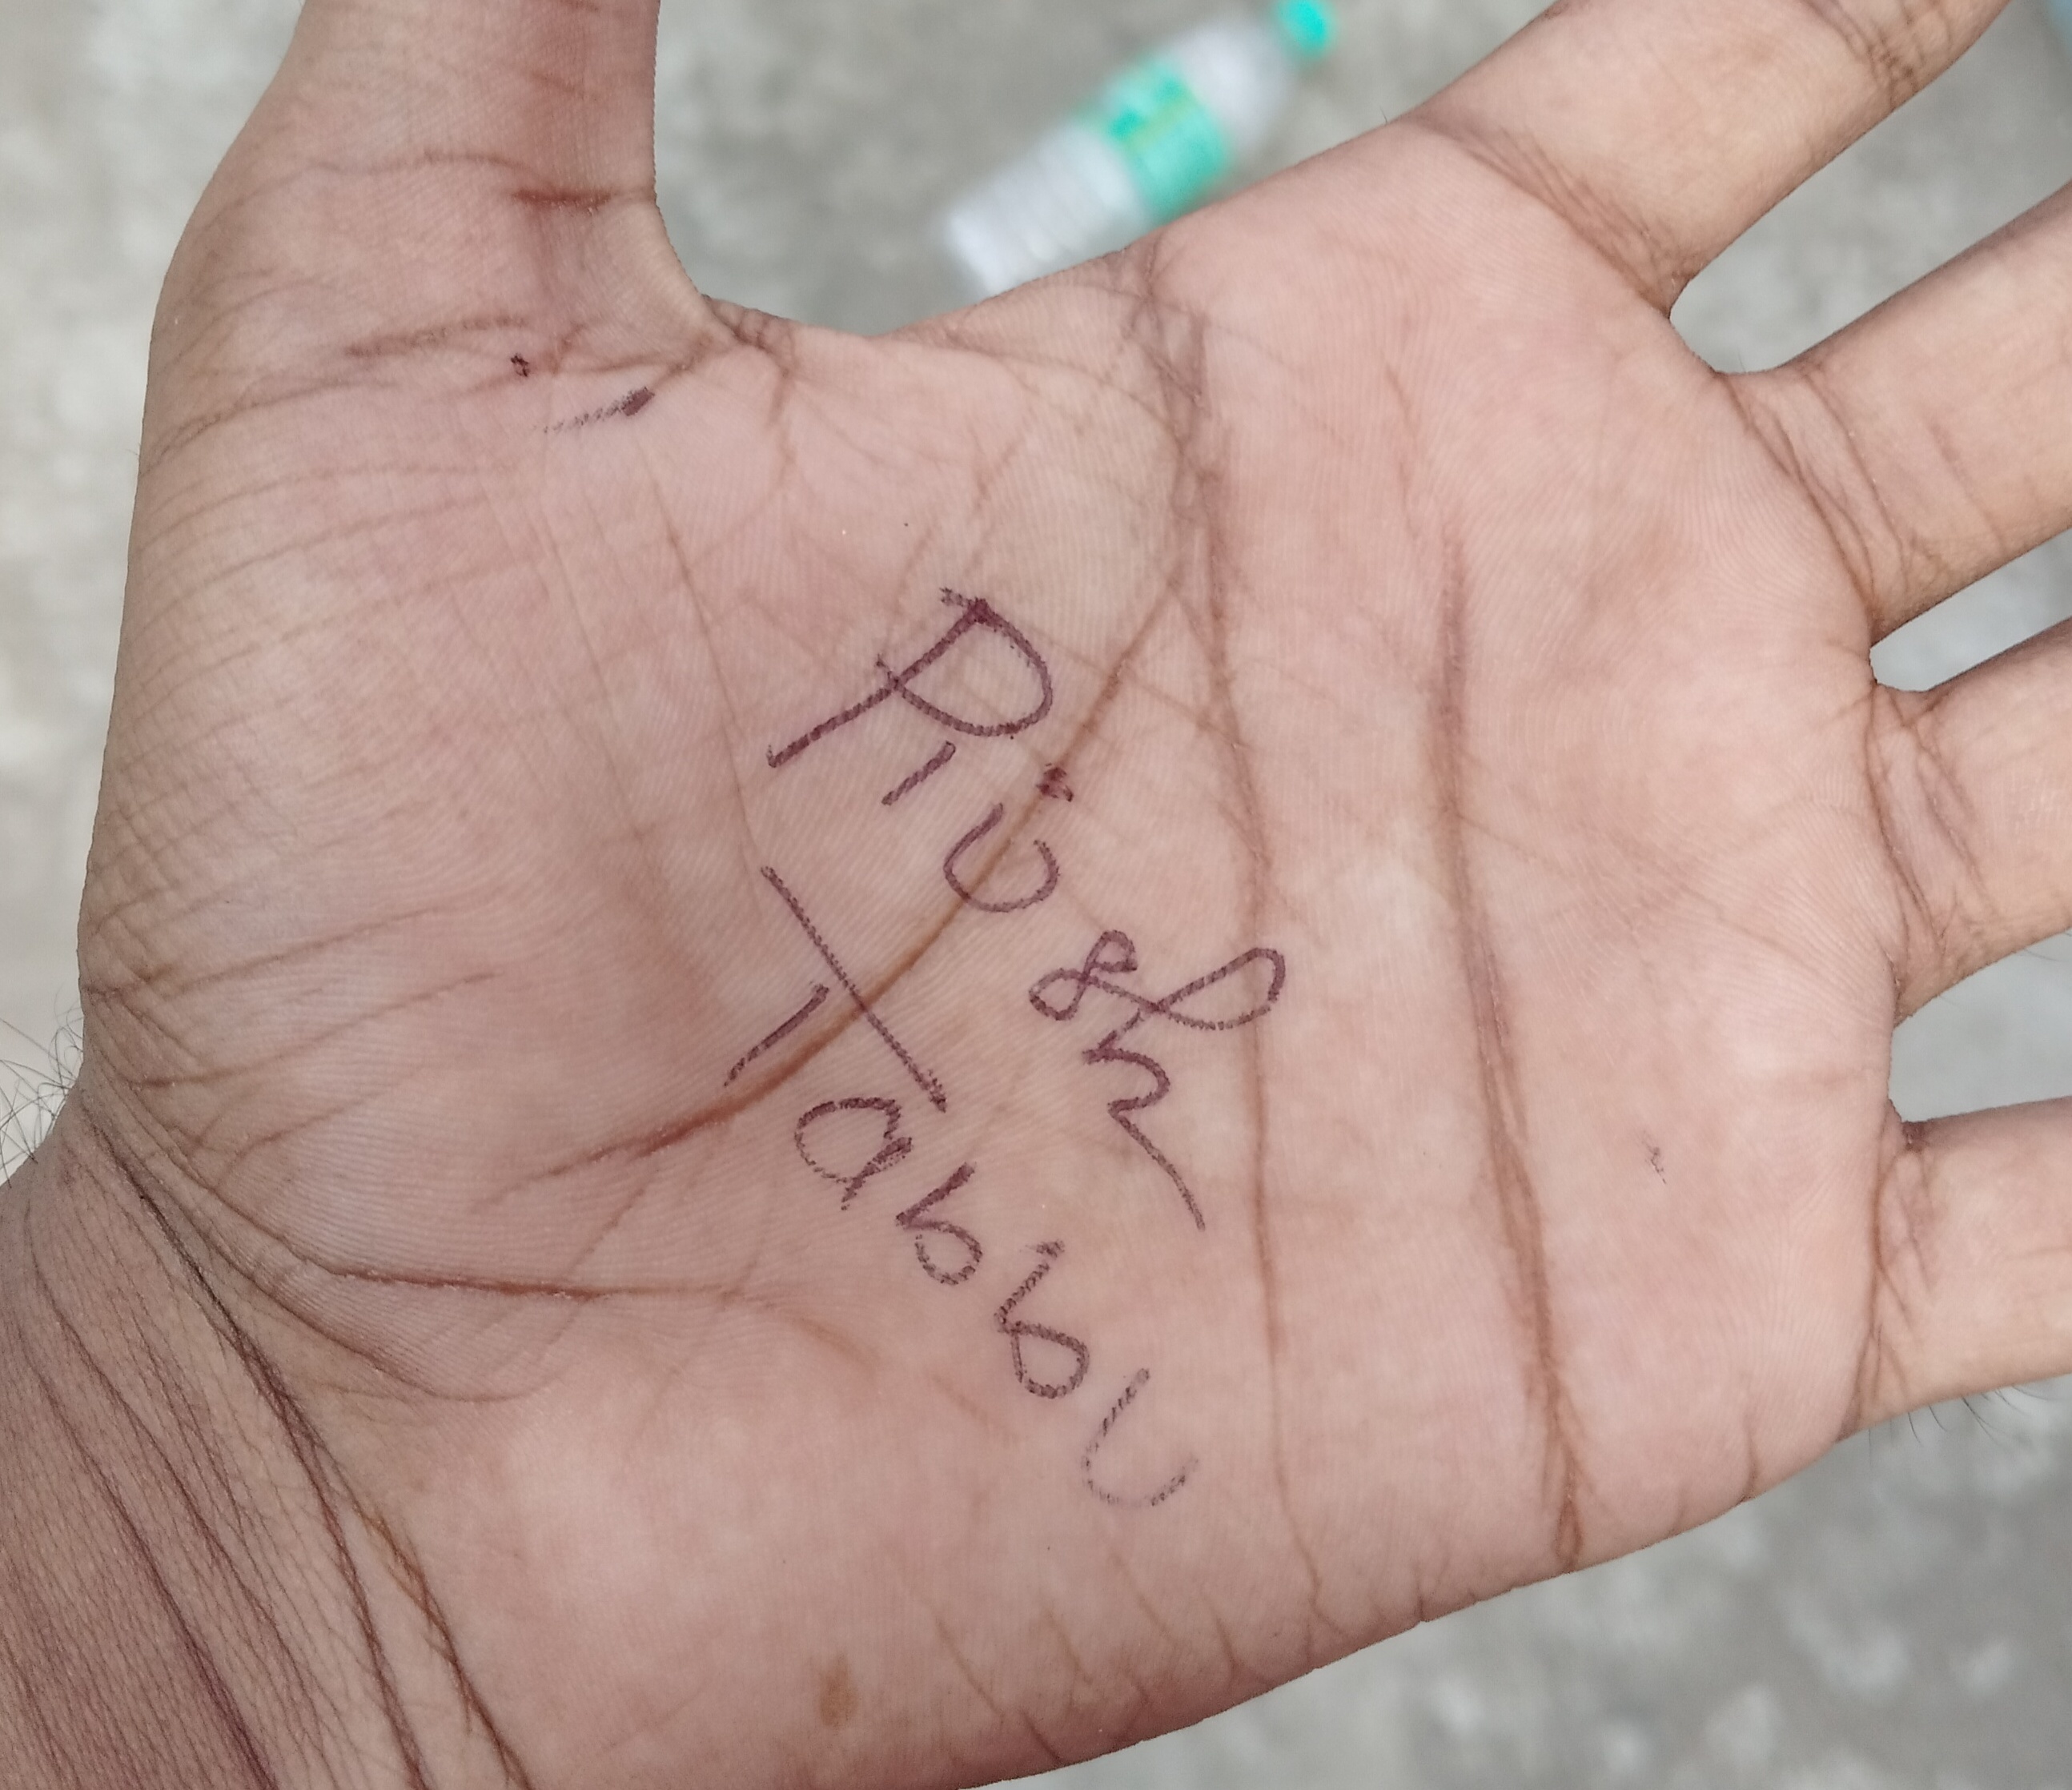 Piush
Tabbu